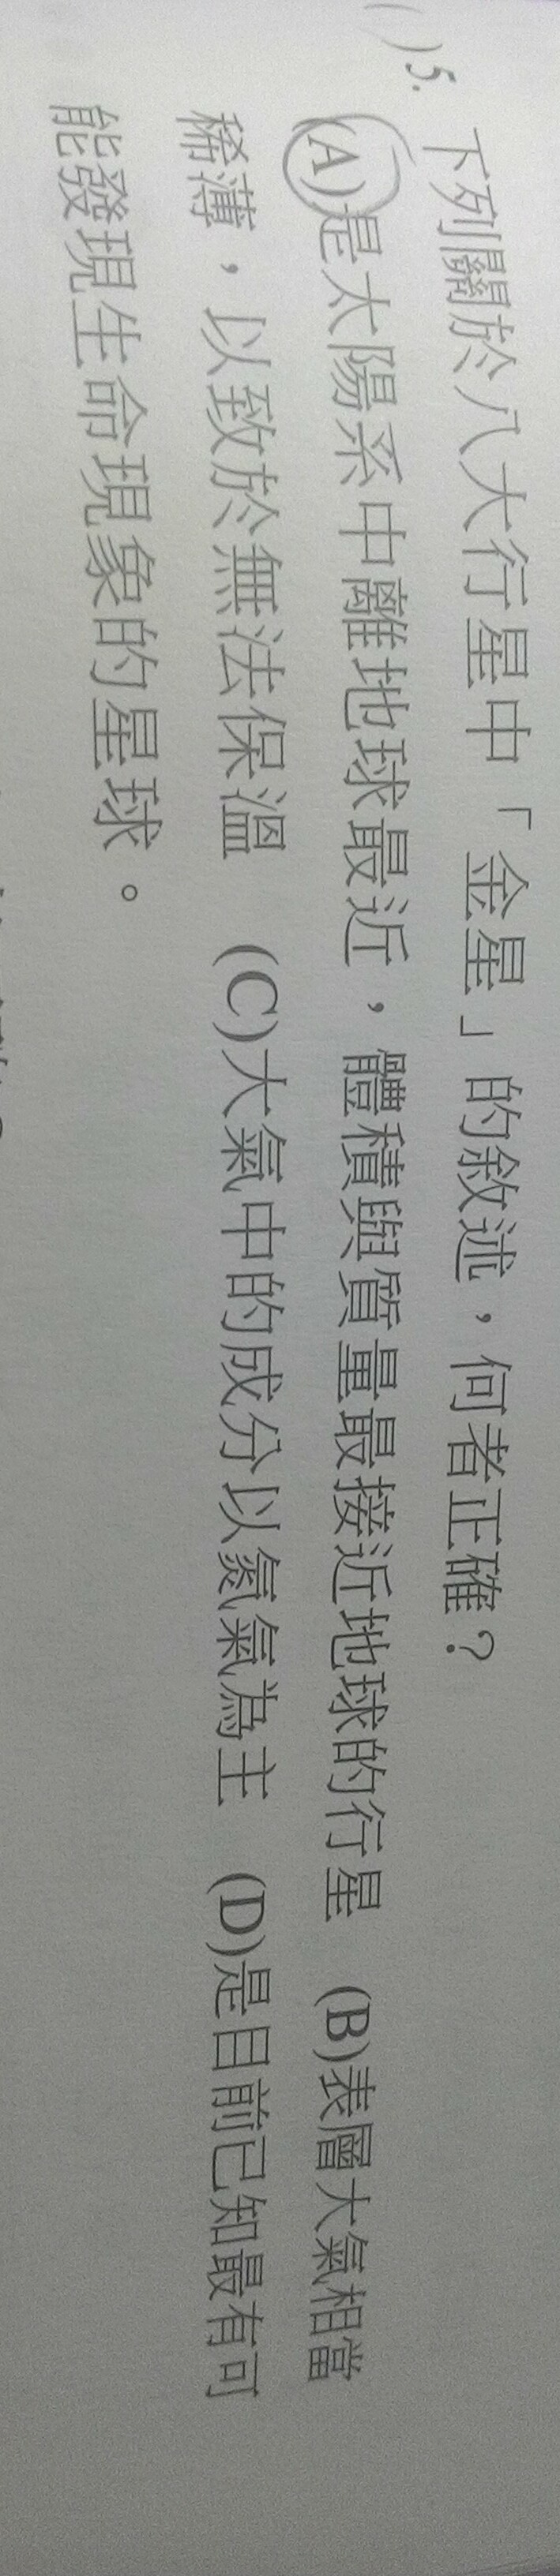 ( )5. 下列關於八大行星中「金星」的敘述，何者正確？
(A)是太陽系中離地球最近，體積與質量最接近地球的行星 (B)表層大氣相當
稀薄，以致於無法保溫 (C)大氣中的成分以氮氣為主 (D)是目前已知最有可
能發現生命現象的星球。